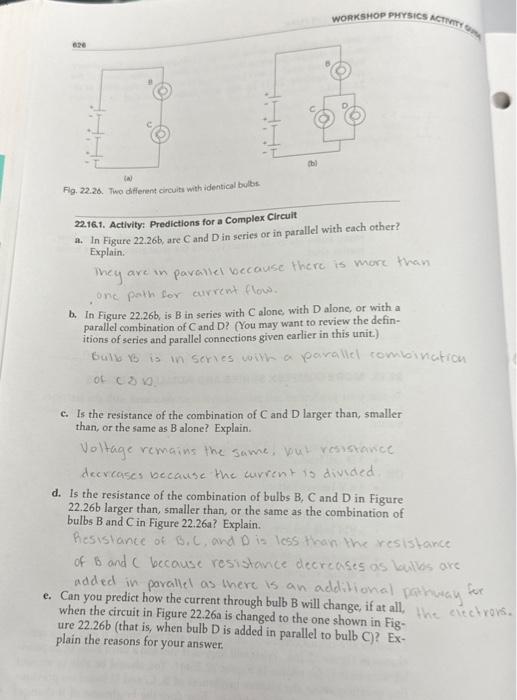 WORKSHOP PHYSICS ACTIVITY GUIDE
626
B
C
(a)
B
C D
(b)
Fig. 22.26. Two different circuits with identical bulbs
22.16.1. Activity: Predictions for a Complex Circuit
a. In Figure 22.26b, are C and D in series or in parallel with each other?
Explain.
They are in parallel because there is more than
one path for current flow.
b. In Figure 22.26b, is B in series with C alone, with D alone, or with a
parallel combination of C and D? (You may want to review the defin-
itions of series and parallel connections given earlier in this unit.)
Bulb B is in series with a parallel combination
of C & D.
c. Is the resistance of the combination of C and D larger than, smaller
than, or the same as B alone? Explain.
Voltage remains the same, but resistance
decreases because the current is divided.
d. Is the resistance of the combination of bulbs B, C and D in Figure
22.26b larger than, smaller than, or the same as the combination of
bulbs B and C in Figure 22.26a? Explain.
Resistance of B, C, and D is less than the resistance
of B and C because resistance decreases as bulbs are
added in parallel as there is an additional pathway for
the electrons.
e. Can you predict how the current through bulb B will change, if at all,
when the circuit in Figure 22.26a is changed to the one shown in Fig-
ure 22.26b (that is, when bulb D is added in parallel to bulb C)? Ex-
plain the reasons for your answer.